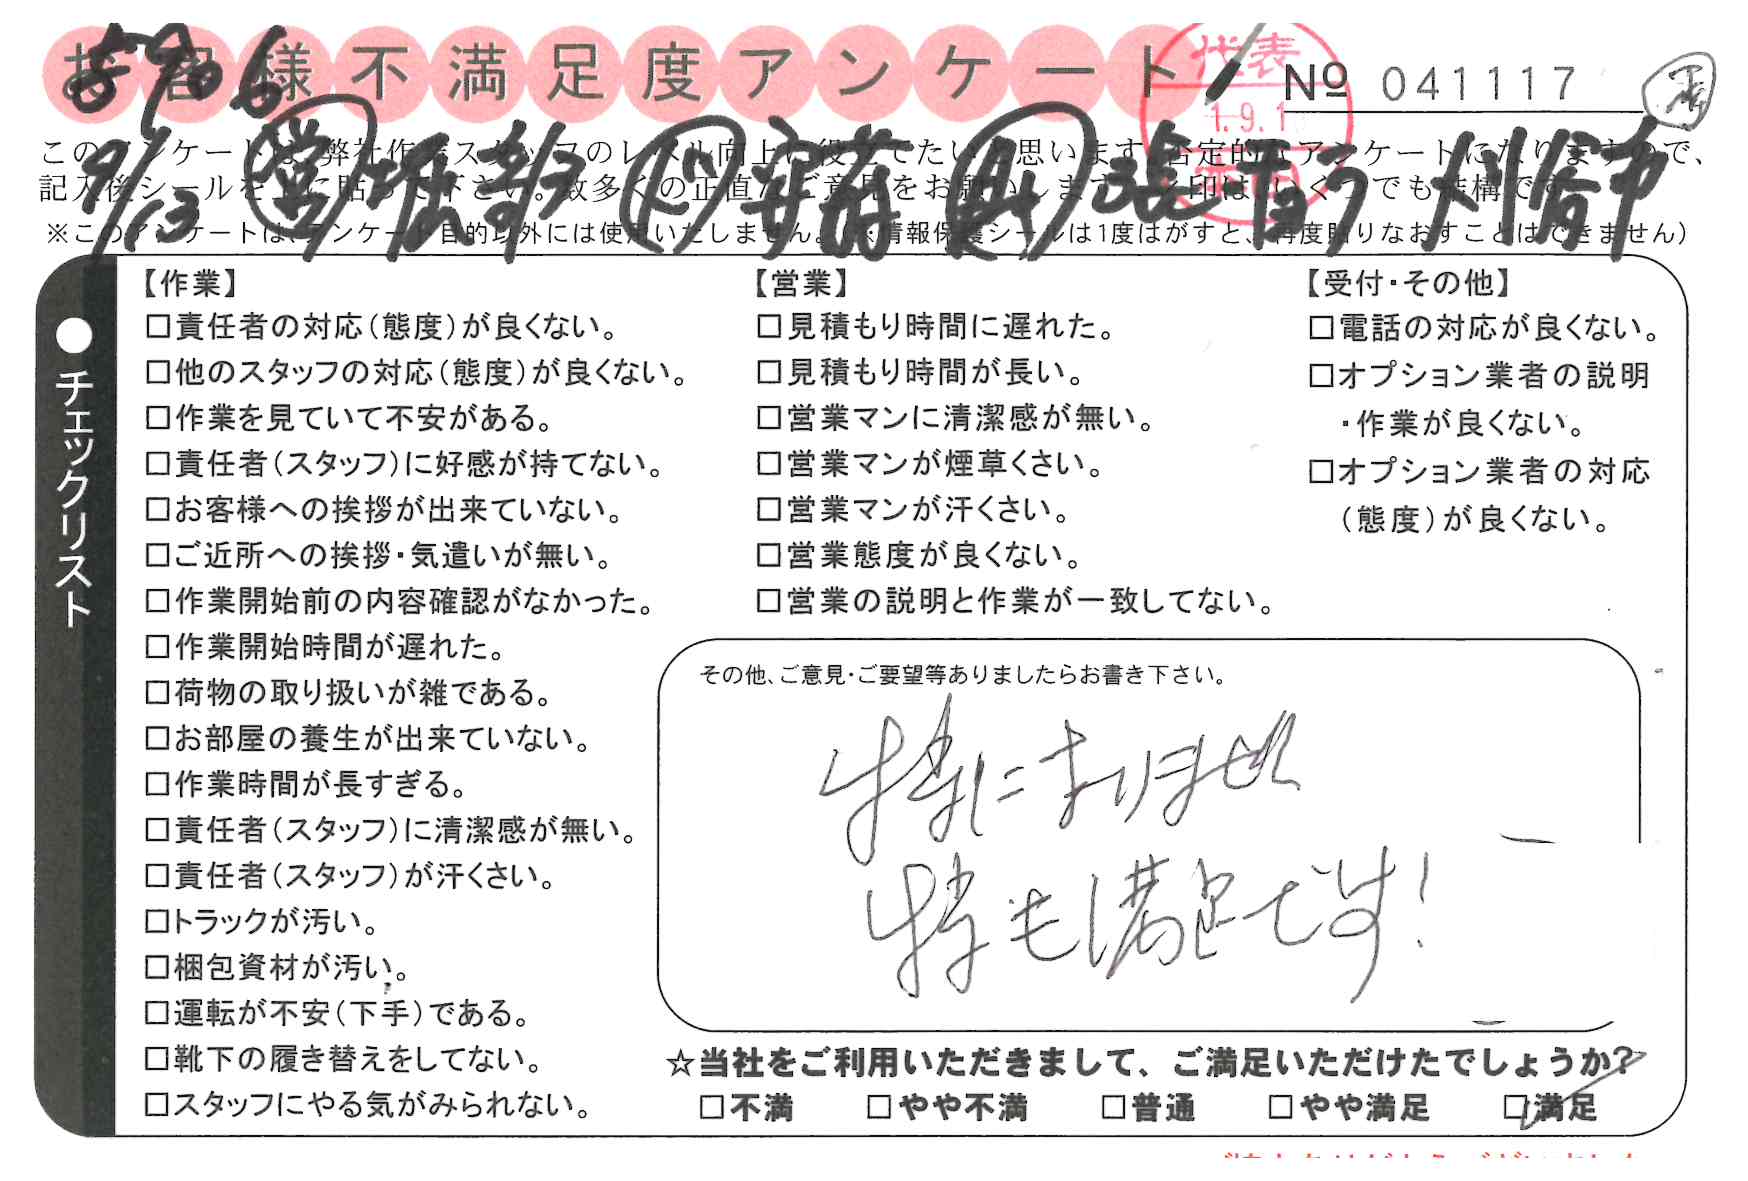 お客様不満足度アンケート
№ 041117
代表
1.9.1
このアンケートは、弊社作業スタッフのレベル向上に役立てたいと思います。否定的なアンケートになりますので、
記入後シールを上に貼って下さい。数多くの正直なご意見をお願いします。✓印は、いくつでも結構です。
※このアンケートは、アンケート目的以外には使用いたしません。(※情報保護シールは1度はがすと、再度貼りなおすことはできません)
9/13 川崎市
●チェックリスト
【作業】
□責任者の対応(態度)が良くない。
□他のスタッフの対応(態度)が良くない。
□作業を見ていて不安がある。
□責任者(スタッフ)に好感が持てない。
□お客様への挨拶が出来ていない。
□ご近所への挨拶・気遣いが無い。
□作業開始前の内容確認がなかった。
□作業開始時間が遅れた。
□荷物の取り扱いが雑である。
□お部屋の養生が出来ていない。
□作業時間が長すぎる。
□責任者(スタッフ)に清潔感が無い。
□責任者(スタッフ)が汗くさい。
□トラックが汚い。
□梱包資材が汚い。
□運転が不安(下手)である。
□靴下の履き替えをしてない。
□スタッフにやる気がみられない。
【営業】
□見積もり時間に遅れた。
□見積もり時間が長い。
□営業マンに清潔感が無い。
□営業マンが煙草くさい。
□営業マンが汗くさい。
□営業態度が良くない。
□営業の説明と作業が一致してない。
【受付・その他】
□電話の対応が良くない。
□オプション業者の説明
・作業が良くない。
□オプション業者の対応
(態度)が良くない。
その他、ご意見・ご要望等ありましたらお書き下さい。
特にありません
特も満足です!
☆当社をご利用いただきまして、ご満足いただけたでしょうか?
□不満 □やや不満 □普通 □やや満足 ☑満足